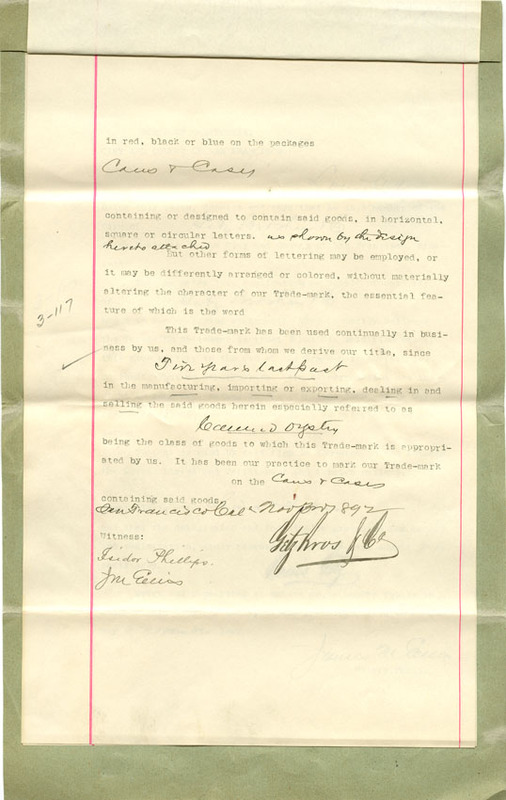 in red, black or blue on the packages
Cans & Cases
containing or designed to contain said goods, in horizontal,
square or circular letters. as shown by the design
hereto attached
But other forms of lettering may be employed, or
it may be differently arranged or colored, without materially
altering the character of our Trade-mark, the essential fea-
ture of which is the word
3-117
This Trade-mark has been used continually in busi-
ness by us, and those from whom we derive our title, since
Five years last past
in the manufacturing, importing or exporting, dealing in and
selling the said goods herein especially referred to as
Canned Oysters
being the class of goods to which this Trade-mark is appropri-
ated by us. It has been our practice to mark our Trade-mark
on the Cans & Cases
containing said goods.
San Francisco Cal Nov 1892
Witness:
Bros & Co
Isidor Phillips.
J M Ellis